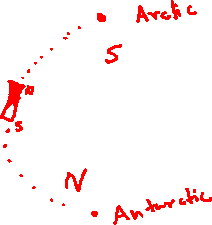 Arctic
S
N
S
N
Antarctic